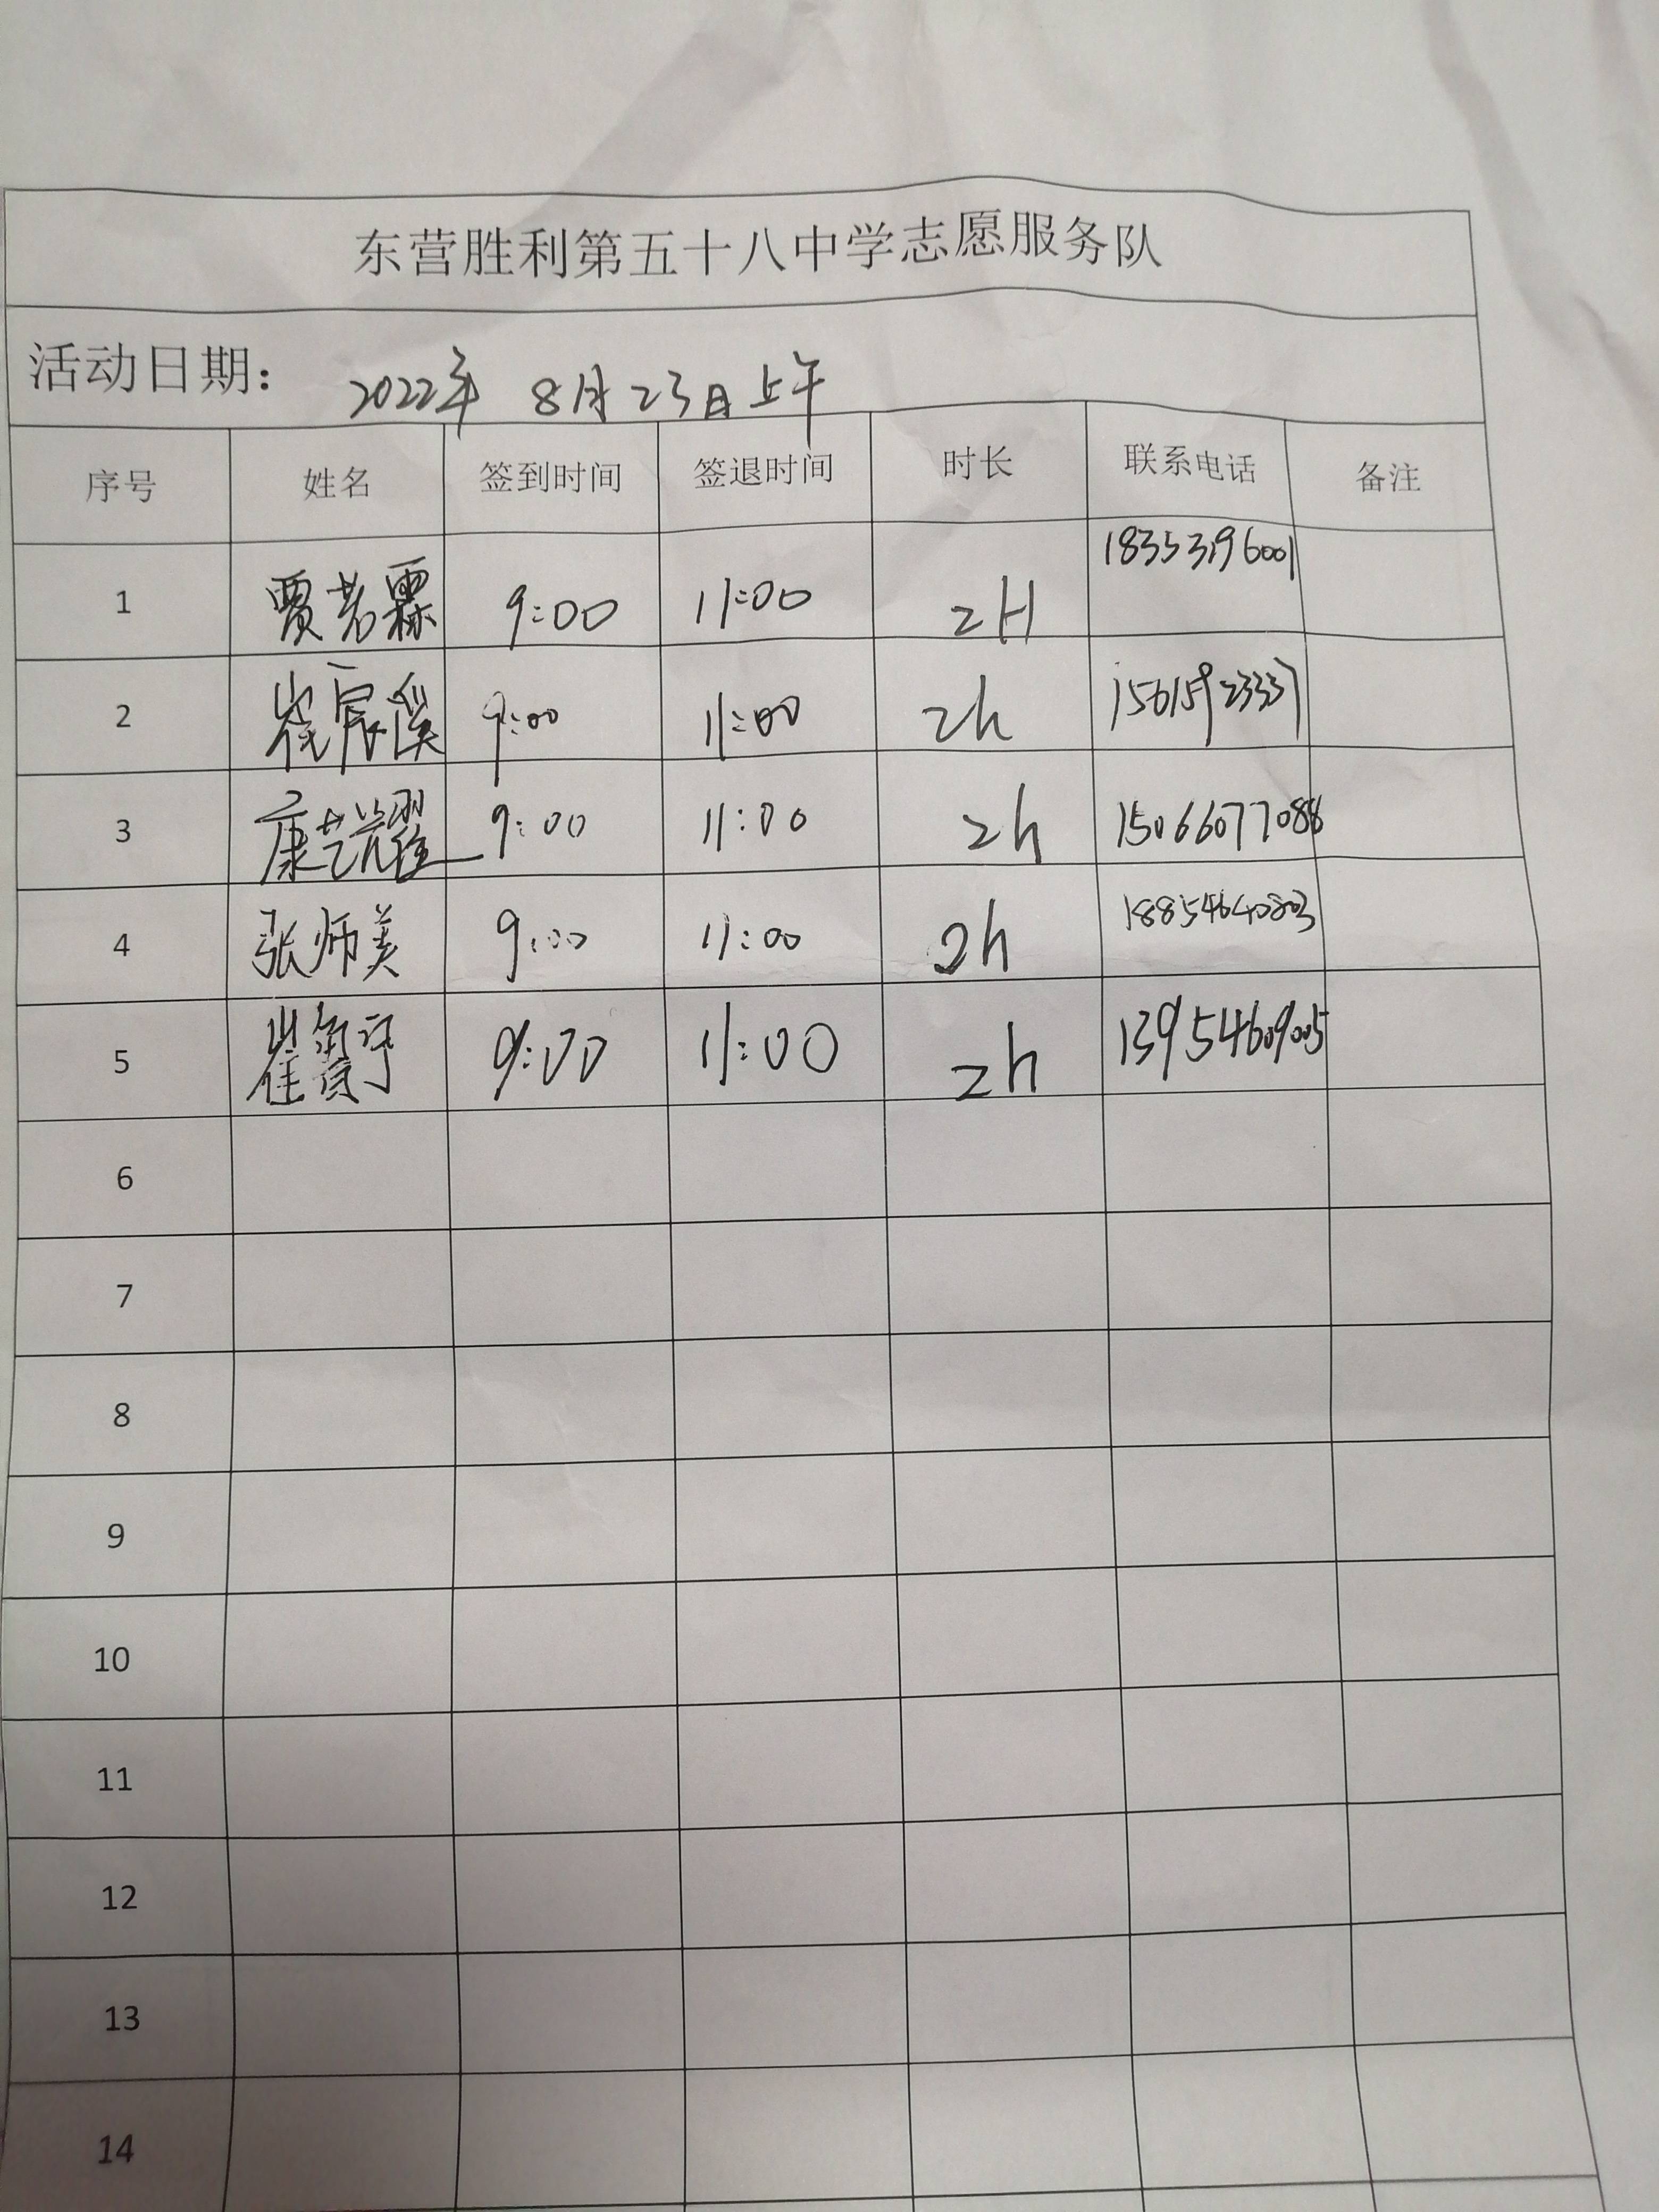 东营胜利第五十八中学志愿服务队
活动日期： 2022年 8月23日上午
序号 姓名 签到时间 签退时间 时长 联系电话 备注
1 贾若霖 9:00 11:00 2H 18353196001
2 崔宸溪 9:00 11:00 2h
3 康艺耀 9:00 11:00 2h 15066077088
4 张师美 9:00 11:00 2h
5 崔 9:00 11:00 2h 13954609005
6
7
8
9
10
11
12
13
14